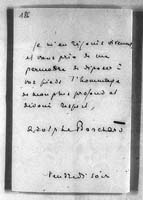 186
je m'en réjouis vivement
et vous prie de me
permettre de déposer à
vos pieds l'hommage
de mon plus profond et
dévoué respect,
Adolphe Boschard
Vendredi soir